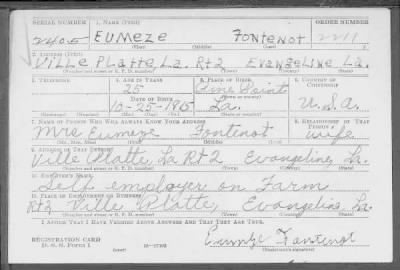 SERIAL NUMBER 1. NAME (Print) ORDER NUMBER
2405 EUMEZE FONTENOT 2211
(First) (Middle) (Last)
2. ADDRESS (Print)
VILLE PLATTE, LA. RT 2 EVANGELINE LA.
(Number and street or R. F. D. number) (Town) (County) (State)
3. TELEPHONE 4. AGE IN YEARS 5. PLACE OF BIRTH 6. COUNTRY OF CITIZENSHIP
25 Pine Point
DATE OF BIRTH (Town or county)
10-25-1915 La. U.S.A.
(Mo.) (Day) (Yr.) (State or country)
7. NAME OF PERSON WHO WILL ALWAYS KNOW YOUR ADDRESS 8. RELATIONSHIP OF THAT PERSON
Mrs Eumeze Fontenot wife
(Mr., Mrs., Miss) (First) (Middle) (Last)
9. ADDRESS OF THAT PERSON
Ville Platte, La Rt 2 Evangeline, La.
(Number and street or R. F. D. number) (Town) (County) (State)
10. EMPLOYER'S NAME
Self employer on Farm
11. PLACE OF EMPLOYMENT OR BUSINESS
Rt 2 Ville Platte, Evangeline, La.
(Number and street or R. F. D. number) (Town) (County) (State)
I AFFIRM THAT I HAVE VERIFIED ABOVE ANSWERS AND THAT THEY ARE TRUE.
REGISTRATION CARD
D. S. S. Form 1 Eumze Fontenot
(Registrant's signature)